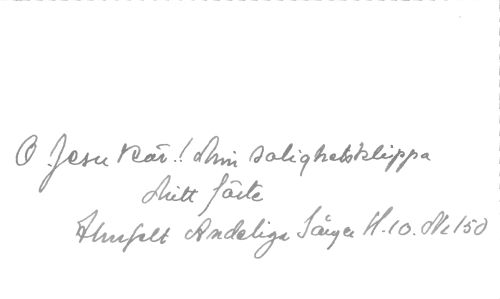 O Jesu kär! Min salighetsklippa
Mitt fäste
Ahnfelt Andeliga Sånger H.10. No 150